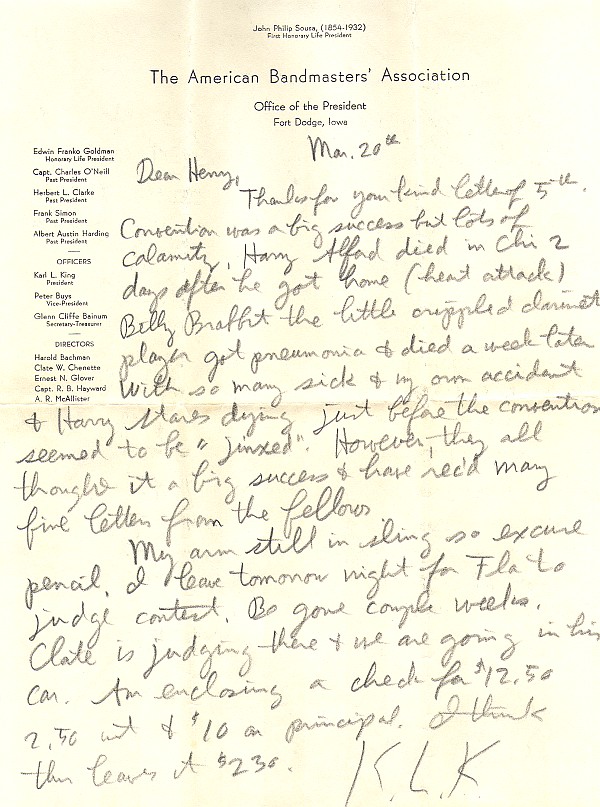 John Philip Sousa, (1854-1932)
First Honorary Life President
The American Bandmasters' Association
Office of the President
Fort Dodge, Iowa
Edwin Franko Goldman
Honorary Life President
Capt. Charles O'Neill
Past President
Herbert L. Clarke
Past President
Frank Simon
Past President
Albert Austin Harding
Past President
OFFICERS
Karl L. King
President
Peter Buys
Vice-President
Glenn Cliffe Bainum
Secretary-Treasurer
DIRECTORS
Harold Bachman
Clate W. Chenette
Ernest N. Glover
Capt. R. B. Hayward
A. R. McAllister
Mar. 20th
Dear Henry,
Thanks for your kind letter of 5th.
Convention was a big success but lots of
calamity, Harry Alford died in Chi 2
days after he got home (heart attack)
Billy Brabbit the little crippled clarinet
player got pneumonia & died a week later
With so many sick & my own accident
& Harry Stares dying just before the convention
seemed to be "jinxed". However, they all
thought it a big success & have rec'd many
fine letters from the fellows
My arm still in sling so excuse
pencil. I leave tomorrow night for Fla to
judge contest. Be gone couple weeks.
Clate is judging there & we are going in his
car. Am enclosing a check for $12.50
2.50 int & $10 on principal. I think
this leaves it $230.
K. L. K